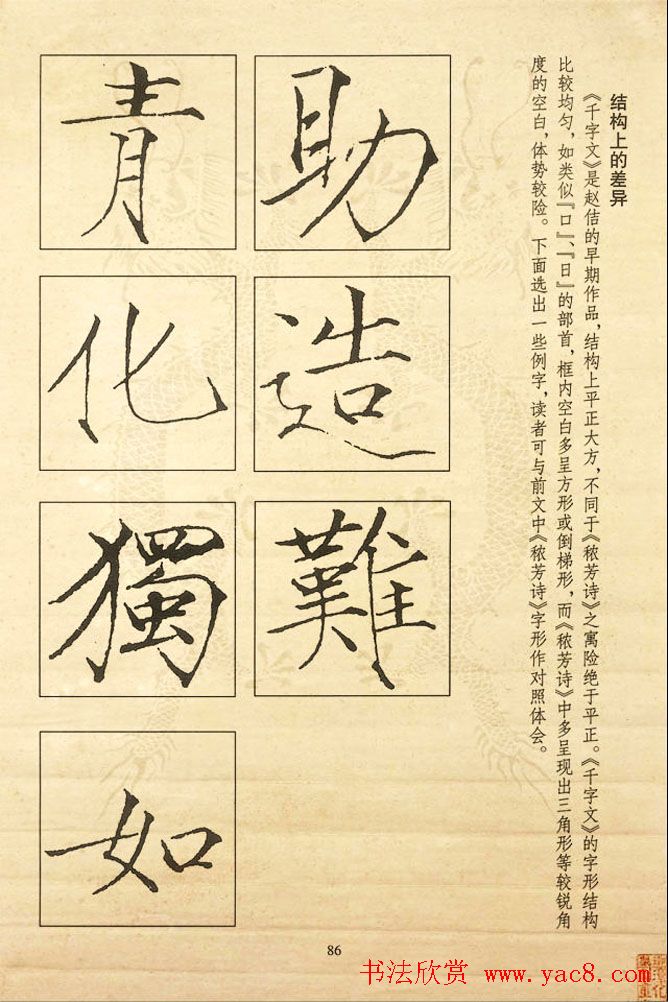 结构上的差异
《千字文》是赵佶的早期作品，结构上平正大方，不同于《秾芳诗》之寓险绝于平正。《千字文》的字形结构
比较均匀，如类似『口』、『日』的部首，框内空白多呈方形或倒梯形，而《秾芳诗》中多呈现出三角形等较锐角
度的空白，体势较险。下面选出一些例字，读者可与前文中《秾芳诗》字形作对照体会。
助
造
難
青
化
獨
如
86
书法欣赏 www.yac8.com